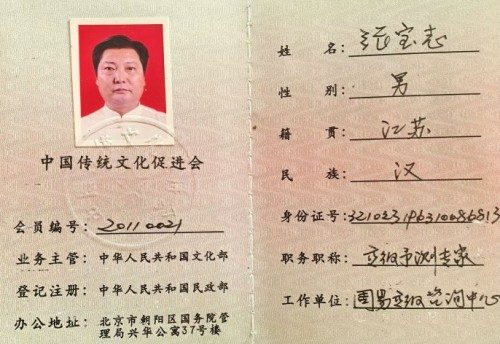 中国传统文化促进会
会员编号：20110021
业务主管：中华人民共和国文化部
登记注册：中华人民共和国民政部
办公地址：北京市朝阳区国务院管
理局兴华公寓37号楼
姓名：张宝志
性别：男
籍贯：江苏
民族：汉
身份证号：
职务职称：高级予测专家
工作单位：周易高级咨询中心